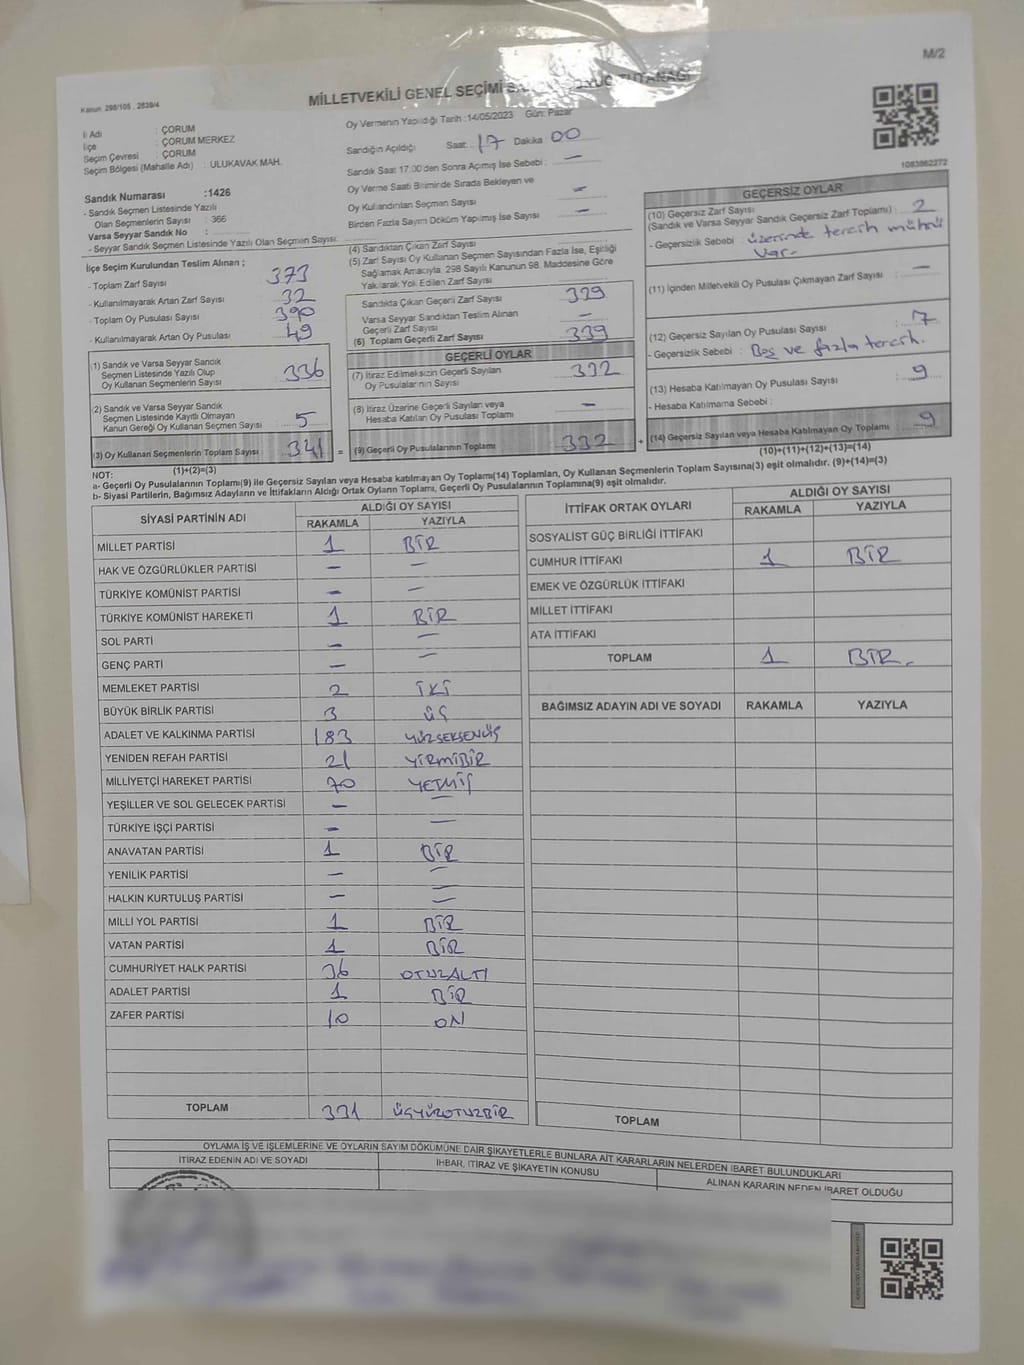 M/2
Kanun: 298/105 , 2839/4
MİLLETVEKİLİ GENEL SEÇİMİ TUTANAĞI
İl Adı : ÇORUM
İlçe : ÇORUM MERKEZ
Seçim Çevresi : ÇORUM
Seçim Bölgesi (Mahalle Adı) : ULUKAVAK MAH.
Oy Vermenin Yapıldığı Tarih :14/05/2023 Gün: Pazar
Sandığın Açıldığı Saat: 17 Dakika 00
Sandık Saat 17:00'den Sonra Açımış İse Sebebi : –
Oy Verme Saati Bitiminde Sırada Bekleyen ve
Oy Kullandırılan Seçmen Sayısı –
Birden Fazla Sayım Döküm Yapılmış İse Sayısı –
1083862272
Sandık Numarası :1426
- Sandık Seçmen Listesinde Yazılı
Olan Seçmenlerin Sayısı : 366
Varsa Seyyar Sandık No :
- Seyyar Sandık Seçmen Listesinde Yazılı Olan Seçmen Sayısı:
İlçe Seçim Kurulundan Teslim Alınan ;
- Toplam Zarf Sayısı 373
- Kullanılmayarak Artan Zarf Sayısı 32
- Toplam Oy Pusulası Sayısı 390
- Kullanılmayarak Artan Oy Pusulası 49
(1) Sandık ve Varsa Seyyar Sandık
Seçmen Listesinde Yazılı Olup
Oy Kullanan Seçmenlerin Sayısı 336
(2) Sandık ve Varsa Seyyar Sandık
Seçmen Listesinde Kayıtlı Olmayan
Kanun Gereği Oy Kullanan Seçmen Sayısı 5
(3) Oy Kullanan Seçmenlerin Toplam Sayısı 341 =
(1)+(2)=(3)
(4) Sandıktan Çıkan Zarf Sayısı
(5) Zarf Sayısı Oy Kullanan Seçmen Sayısından Fazla İse, Eşitliği
Sağlamak Amacıyla, 298 Sayılı Kanunun 98. Maddesine Göre
Yakılarak Yok Edilen Zarf Sayısı
Sandıkta Çıkan Geçerli Zarf Sayısı 339
Varsa Seyyar Sandıktan Teslim Alınan
Geçerli Zarf Sayısı –
(6) Toplam Geçerli Zarf Sayısı 339
GEÇERLİ OYLAR
(7) İtiraz Edilmeksizin Geçerli Sayılan
Oy Pusulalarının Sayısı 332
(8) İtiraz Üzerine Geçerli Sayılan veya
Hesaba Katılan Oy Pusulası Toplamı –
(9) Geçerli Oy Pusulalarının Toplamı 332 +
GEÇERSİZ OYLAR
(10) Geçersiz Zarf Sayısı
(Sandık ve Varsa Seyyar Sandık Geçersiz Zarf Toplamı) : 2
- Geçersizlik Sebebi : üzerinde tercih mührü
var.
(11) İçinden Milletvekili Oy Pusulası Çıkmayan Zarf Sayısı : –
(12) Geçersiz Sayılan Oy Pusulası Sayısı : 7
- Geçersizlik Sebebi : Boş ve fazla tercih.
(13) Hesaba Katılmayan Oy Pusulası Sayısı : 9
- Hesaba Katılmama Sebebi :
(14) Geçersiz Sayılan veya Hesaba Katılmayan Oy Toplamı 9
(10)+(11)+(12)+(13)=(14)
NOT:
a- Geçerli Oy Pusulalarının Toplamı(9) ile Geçersiz Sayılan veya Hesaba katılmayan Oy Toplamı(14) Toplamları, Oy Kullanan Seçmenlerin Toplam Sayısına(3) eşit olmalıdır. (9)+(14)=(3)
b- Siyasi Partilerin, Bağımsız Adayların ve İttifakların Aldığı Ortak Oyların Toplamı, Geçerli Oy Pusulalarının Toplamına(9) eşit olmalıdır.
SİYASİ PARTİNİN ADI ALDIĞI OY SAYISI
RAKAMLA YAZIYLA
MİLLET PARTİSİ 1 BİR
HAK VE ÖZGÜRLÜKLER PARTİSİ – –
TÜRKİYE KOMÜNİST PARTİSİ – –
TÜRKİYE KOMÜNİST HAREKETİ 1 BİR
SOL PARTİ – –
GENÇ PARTİ – –
MEMLEKET PARTİSİ 2 İKİ
BÜYÜK BİRLİK PARTİSİ 3 ÜÇ
ADALET VE KALKINMA PARTİSİ 183 YÜZSEKSENÜÇ
YENİDEN REFAH PARTİSİ 21 YİRMİBİR
MİLLİYETÇİ HAREKET PARTİSİ 70 YETMİŞ
YEŞİLLER VE SOL GELECEK PARTİSİ – –
TÜRKİYE İŞÇİ PARTİSİ – –
ANAVATAN PARTİSİ 1 BİR
YENİLİK PARTİSİ – –
HALKIN KURTULUŞ PARTİSİ – –
MİLLİ YOL PARTİSİ 1 BİR
VATAN PARTİSİ 1 BİR
CUMHURİYET HALK PARTİSİ 36 OTUZALTI
ADALET PARTİSİ 1 BİR
ZAFER PARTİSİ 10 ON
TOPLAM 331 ÜÇYÜZOTUZBİR
İTTİFAK ORTAK OYLARI ALDIĞI OY SAYISI
RAKAMLA YAZIYLA
SOSYALİST GÜÇ BİRLİĞİ İTTİFAKI
CUMHUR İTTİFAKI 1 BİR
EMEK VE ÖZGÜRLÜK İTTİFAKI
MİLLET İTTİFAKI
ATA İTTİFAKI
TOPLAM 1 BİR.
BAĞIMSIZ ADAYIN ADI VE SOYADI RAKAMLA YAZIYLA
TOPLAM
OYLAMA İŞ VE İŞLEMLERİNE VE OYLARIN SAYIM DÖKÜMÜNE DAİR ŞİKAYETLERLE BUNLARA AİT KARARLARIN NELERDEN İBARET BULUNDUKLARI
İTİRAZ EDENİN ADI VE SOYADI
İHBAR, İTİRAZ VE ŞİKAYETİN KONUSU
ALINAN KARARIN NEDEN İBARET OLDUĞU